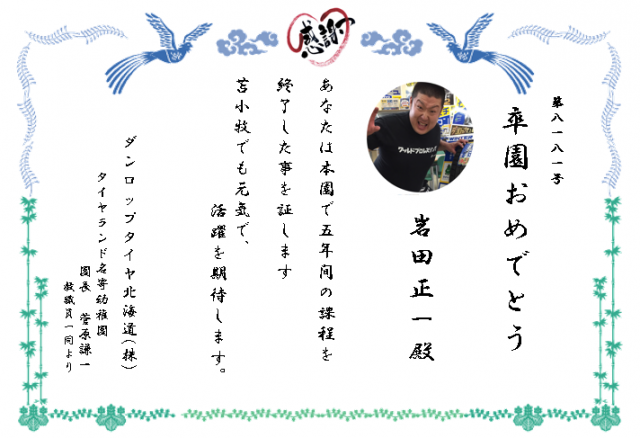 感謝
第八一八一号
卒園おめでとう
岩田正一殿
ワールドプロレスリング
あなたは本園で五年間の課程を
終了した事を証します
苫小牧でも元気で、
活躍を期待します。
ダンロップタイヤ北海道(株)
タイヤランド名寄幼稚園
園長 菅原謙一
教職員一同より